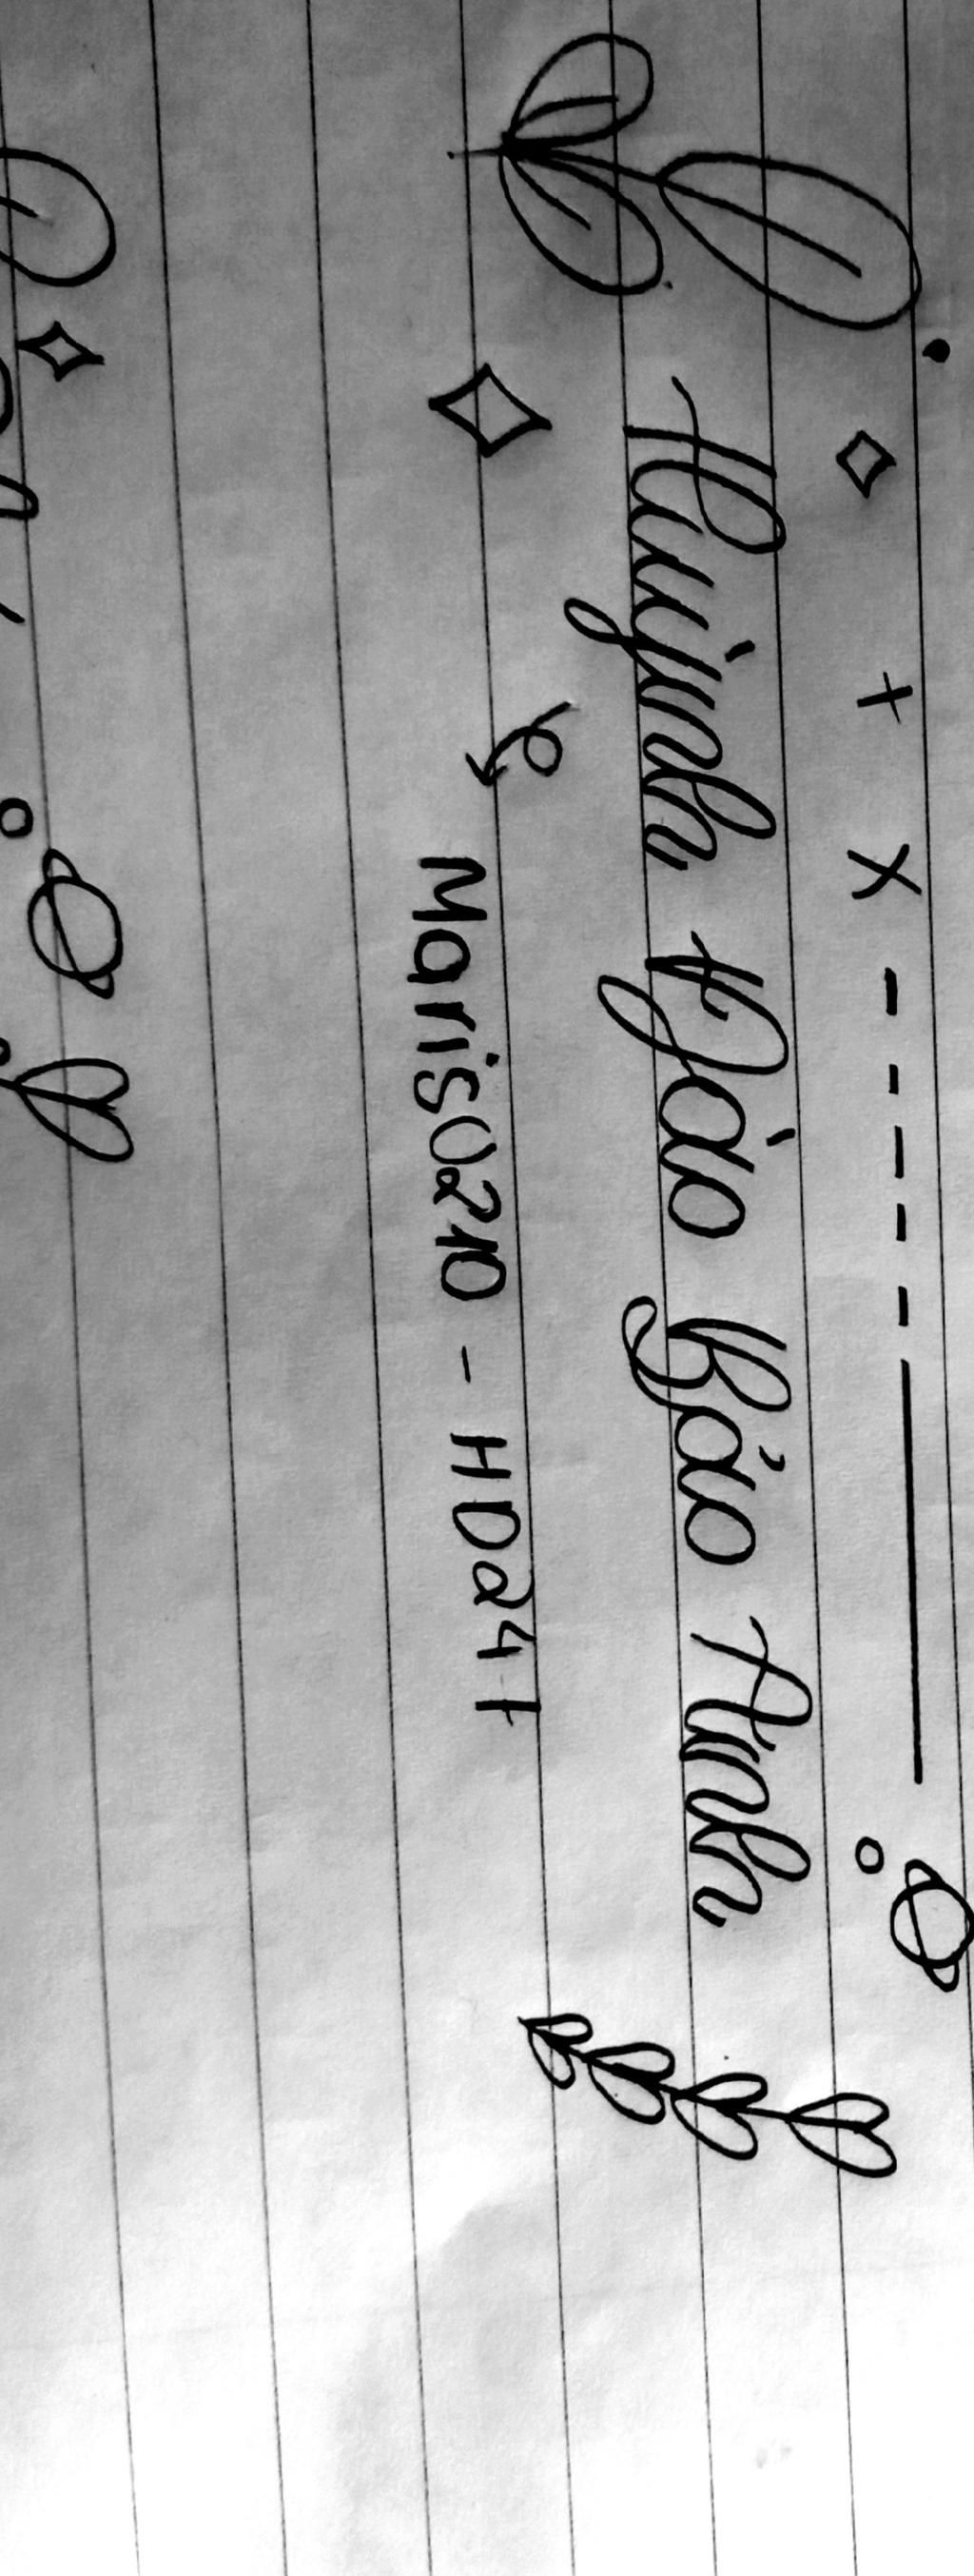 Huỳnh Đào Bảo Anh
Maris0210 - HD241